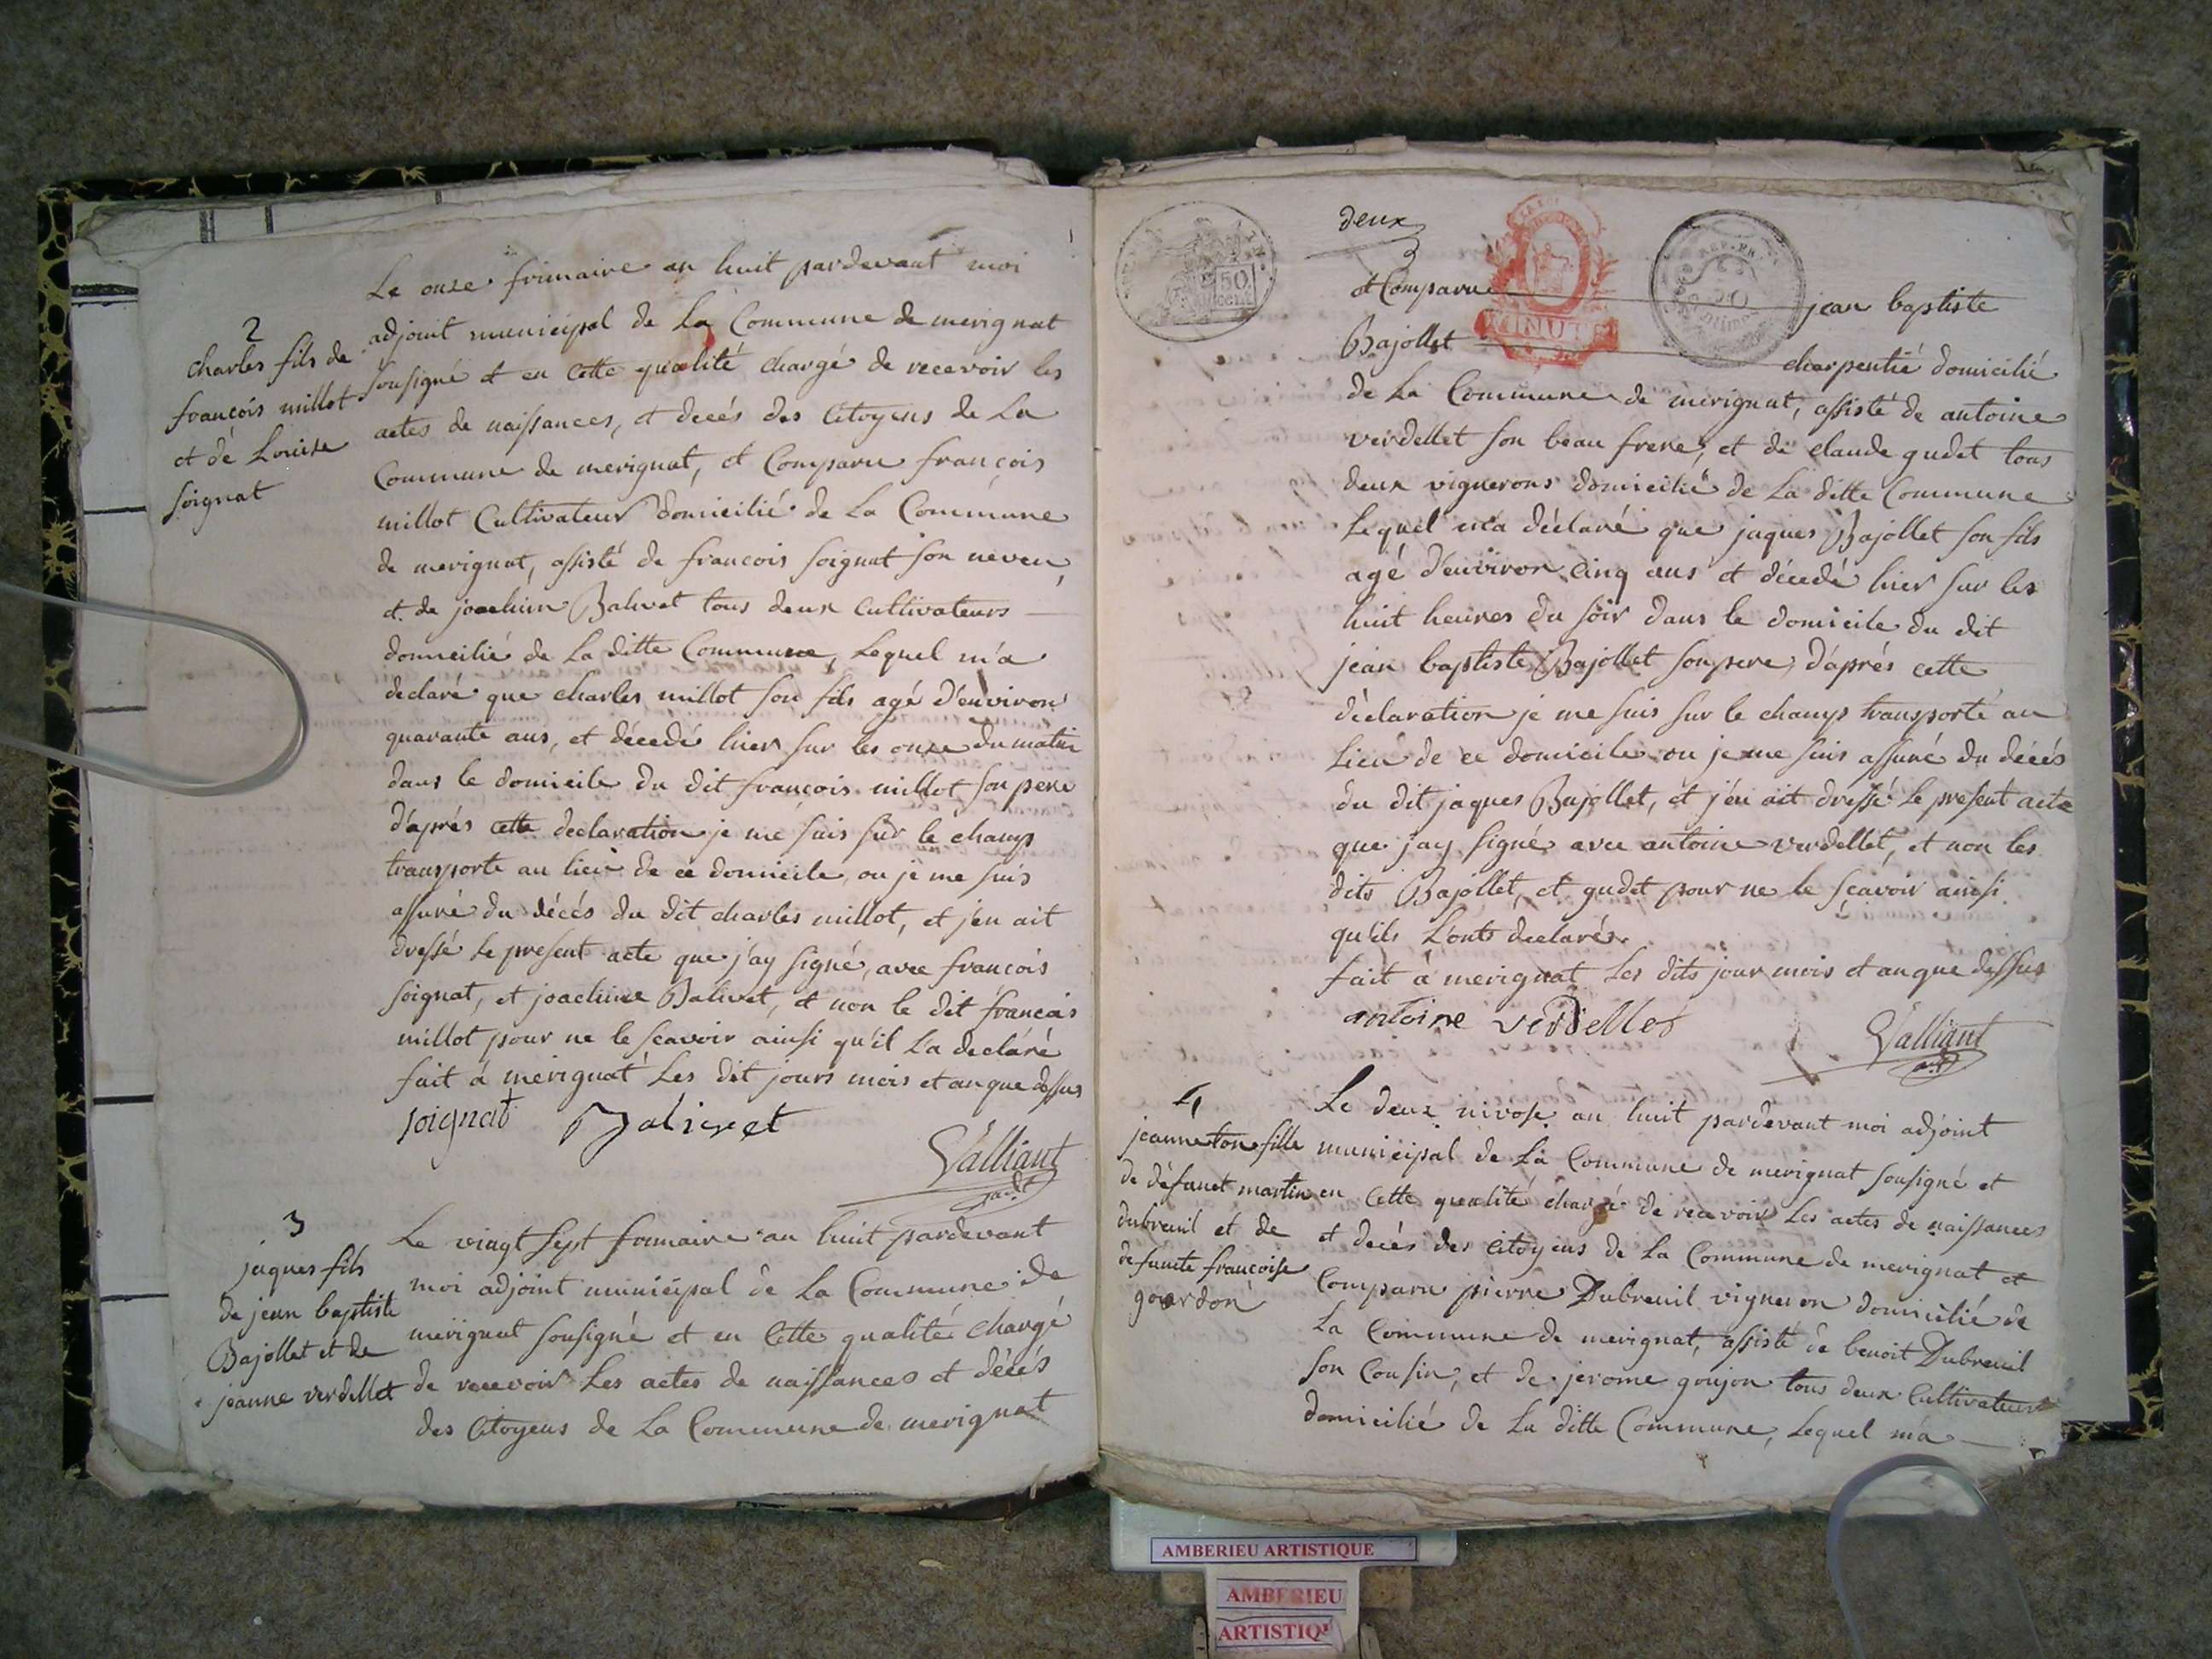 2
charles fils de
françois millot
et de Louise
soignat
Le onze frimaire an huit pardevant moi
adjoint municipal de La Commune de merignat
sousigné et en cette qualité chargé de recevoir les
actes de naissances, et decés des Citoyens de La
Commune de merignat, et Comparu françois
millot Cultivateur domicilié de La Commune
de merignat, assisté de francois soignat son neveu,
et de joachim Balivet tous deux cultivateurs
domicilié de La ditte Commune, Lequel m'a
declaré que charles millot son fils agé d'environ
quarante ans, et décedé hier sur les onze du matin
dans le domicile du dit françois millot son pere
d'aprés cette declaration je me suis sur le champ
transporté au lieu de ce domicile ou je me suis
assuré du décés du dit charles millot, et j'en ait
dressé le present acte que j'ay signé, avec françois
soignat, et joachim Balivet, et non le dit françois
millot pour ne le scavoir ainsi qu'il L'a declaré
fait á merignat Les dit jours mois et an que dessus
soignat Balivet
Valliant
adjt
3
jaques fils
de jean baptiste
Bajollet et de
jeanne verdellet
Le vingt sept frimaire an huit pardevant
moi adjoint municipal de La Commune de
merignat sousigné et en Cette qualité chargé
de recevoir Les actes de naissances et décés
des Citoyens de La Commune de merignat
deux
50
cent
REP. FRA
50
MINUTE
et Comparu jean baptiste
Bajollet charpentié domicilié
de La Commune de merignat, assisté de antoine
verdellet son beau frere, et de claude gudet tous
deux vignerons domicilié de La ditte Commune
Lequel m'a déclaré que jaques Bajollet son fils
agé d'environ cinq ans et décedé hier sur les
huit heures du soir dans le domicile du dit
jean baptiste Bajollet son pere, d'aprés cette
déclaration je me suis sur le champ transporté au
Lieu de ce domicile ou je me suis assuré du décés
du dit jaques Bajollet, et j'en ait dressé le present acte
que j'ay signé avec antoine verdellet, et non les
dits Bajollet, et gudet pour ne le sçavoir ainsi
qu'ils L'onts declarés.
fait á merignat Les dits jour mois et an que dessus
antoine verdellet
Valliant
adjt
4
jeanneton fille
de défunct martin
dubreuil et de
defuncte francoise
gourdon
Le deux nivose an huit pardevant moi adjoint
municipal de La Commune de merignat sousigné et
en Cette quealité chargé de recevoir Les actes de naissances
et decés des Citoyens de La Commune de merignat et
Comparu pierre Dubreuil vigneron domicilié de
La Commune de merignat, assisté de benoit Dubreuil
son Cousin, et de jerome goujon tous deux Cultivateurs
domicilié de La ditte Commune, Lequel m'a
AMBERIEU ARTISTIQUE
AMBERIEU
ARTISTIQU